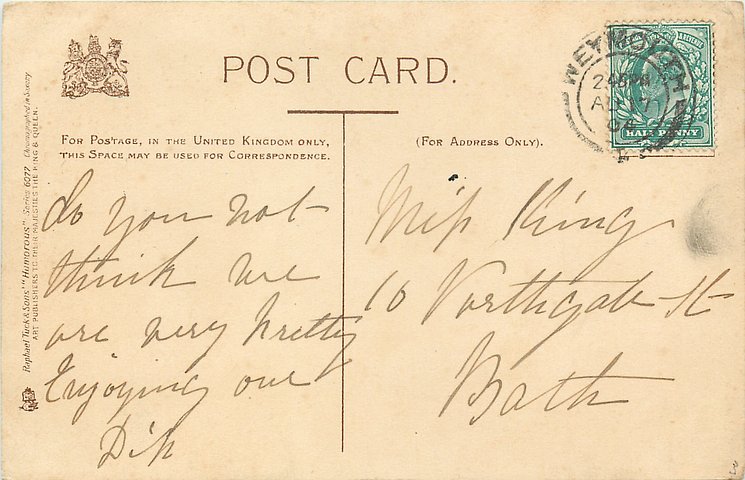 POST CARD.
FOR POSTAGE, IN THE UNITED KINGDOM ONLY,
THIS SPACE MAY BE USED FOR CORRESPONDENCE.
(FOR ADDRESS ONLY).
WEYMOUTH
2 45 PM
AU 17
04
HALF PENNY
Raphael Tuck & Sons' "Humorous" Series 6077 Chromographed in Saxony
ART PUBLISHERS TO THEIR MAJESTIES THE KING & QUEEN.
do you not
think we
are very pretty
Enjoying our
Dip
Miss King
10 Northgate St
Bath